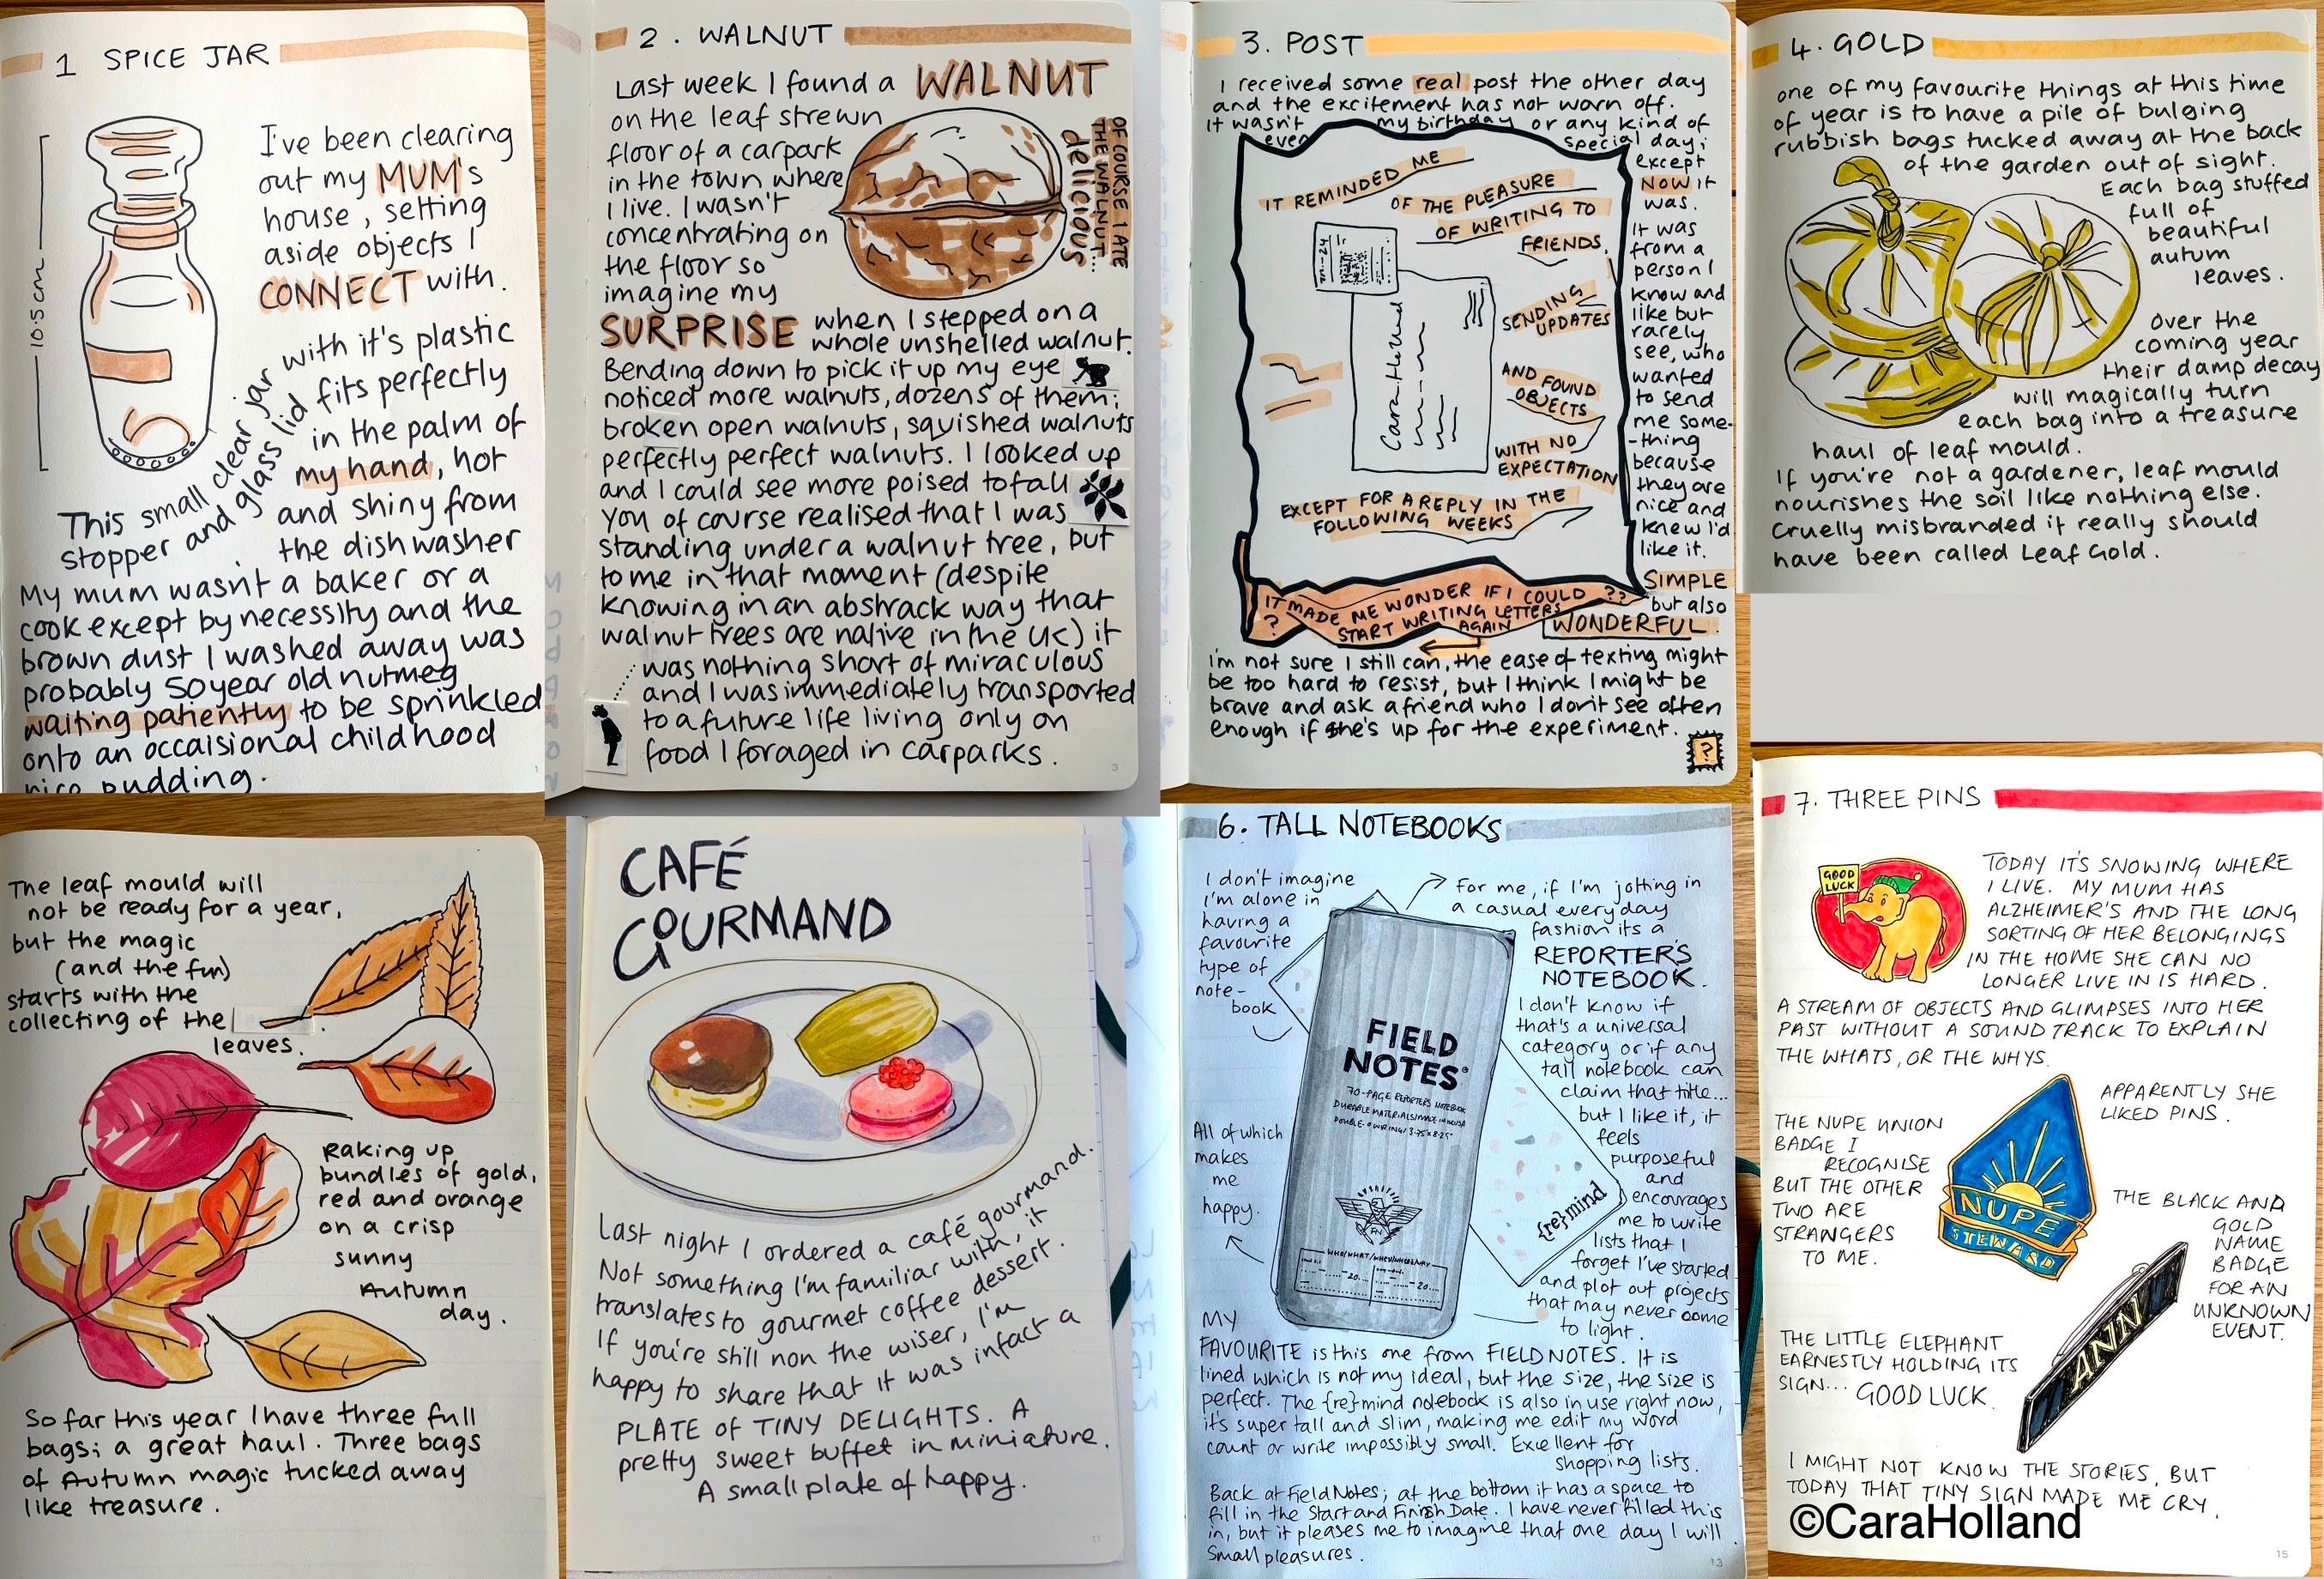 1 SPICE JAR
10.5cm
I've been clearing
out my MUM's
house, setting
aside objects I
CONNECT with.
This small clear jar with it's plastic
stopper and glass lid fits perfectly
in the palm of
my hand, hot
and shiny from
the dishwasher
My mum wasn't a baker or a
cook except by necessity and the
brown dust I washed away was
probably 50year old nutmeg
waiting patiently to be sprinkled
onto an occaisional childhood
rice pudding.
1
2. WALNUT
Last week I found a WALNUT
on the leaf strewn
floor of a carpark
in the town where
I live. I wasn't
concentrating on
the floor so
imagine my
SURPRISE when I stepped on a
whole unshelled walnut.
Bending down to pick it up my eye
noticed more walnuts, dozens of them;
broken open walnuts, squished walnuts
perfectly perfect walnuts. I looked up
and I could see more poised to fall
You of course realised that I was
standing under a walnut tree, but
to me in that moment (despite
knowing in an abstrack way that
walnut trees are native in the UK) it
was nothing short of miraculous
and I was immediately transported
to a future life living only on
food I foraged in carparks.
OF COURSE I ATE
THE WALNUT...
delicious
3
3. POST
I received some real post the other day
and the excitement has not worn off.
It wasn't my birthday or any kind of
even special day;
except
NOW it
was.
It was
from a
person I
know and
like but
rarely
see, who
wanted
to send
me some-
-thing
because
they are
nice and
knew I'd
like it.
SIMPLE
but also
WONDERFUL.
IT REMINDED ME
OF THE PLEASURE
OF WRITING TO
FRIENDS,
SENDING
UPDATES
AND FOUND
OBJECTS
WITH NO
EXPECTATION
EXCEPT FOR A REPLY IN THE
FOLLOWING WEEKS
IT MADE ME WONDER IF I COULD ??
? START WRITING LETTERS
AGAIN
I'm not sure I still can, the ease of texting might
be too hard to resist, but I think I might be
brave and ask a friend who I don't see often
enough if she's up for the experiment.
?
4. GOLD
one of my favourite things at this time
of year is to have a pile of bulging
rubbish bags tucked away at the back
of the garden out of sight.
Each bag stuffed
full of
beautiful
autum
leaves.
Over the
coming year
their damp decay
will magically turn
each bag into a treasure
haul of leaf mould.
If you're not a gardener, leaf mould
nourishes the soil like nothing else.
Cruelly misbranded it really should
have been called Leaf Gold.
The leaf mould will
not be ready for a year,
but the magic
(and the fun)
starts with the
collecting of the
leaves.
Raking up
bundles of gold,
red and orange
on a crisp
sunny
Autumn
day.
So far this year I have three full
bags; a great haul. Three bags
of Autumn magic tucked away
like treasure.
CAFÉ
GOURMAND
Last night I ordered a café gourmand.
Not something I'm familiar with, it
translates to gourmet coffee dessert.
If you're still non the wiser, I'm
happy to share that it was infact a
PLATE OF TINY DELIGHTS. A
pretty sweet buffet in miniature.
A small plate of happy.
11
6. TALL NOTEBOOKS
I don't imagine
I'm alone in
having a
favourite
type of
note-
book
For me, if I'm jotting in
a casual everyday
fashion its a
REPORTER'S
NOTEBOOK.
I don't know if
that's a universal
category or if any
tall notebook can
claim that title...
but I like it, it
feels
purposeful
and
encourages
me to write
lists that I
forget I've started
and plot out projects
that may never come
to light.
All of which
makes
me
happy.
FIELD
NOTES
70-PAGE REPORTER'S NOTEBOOK
DURABLE MATERIALS/MADE IN USA
DOUBLE-O WIRING/3.75X8.25"
WHO/WHAT/WHEN/WHERE/WHY
{re}mind
MY
FAVOURITE is this one from FIELD NOTES. It is
lined which is not my ideal, but the size, the size is
perfect. The {re}mind notebook is also in use right now,
it's super tall and slim, making me edit my word
count or write impossibly small. Excellent for
shopping lists.
Back at Field Notes; at the bottom it has a space to
fill in the Start and Finish Date. I have never filled this
in, but it pleases me to imagine that one day I will
Small pleasures.
13
7. THREE PINS
GOOD
LUCK
TODAY IT'S SNOWING WHERE
I LIVE. MY MUM HAS
ALZHEIMER'S AND THE LONG
SORTING OF HER BELONGINGS
IN THE HOME SHE CAN NO
LONGER LIVE IN IS HARD.
A STREAM OF OBJECTS AND GLIMPSES INTO HER
PAST WITHOUT A SOUND TRACK TO EXPLAIN
THE WHATS, OR THE WHYS.
APPARENTLY SHE
LIKED PINS.
THE NUPE UNION
BADGE I
RECOGNISE
BUT THE OTHER
TWO ARE
STRANGERS
TO ME.
NUPE
STEWARD
THE BLACK AND
GOLD
NAME
BADGE
FOR AN
UNKNOWN
EVENT.
ANN
THE LITTLE ELEPHANT
EARNESTLY HOLDING ITS
SIGN... GOOD LUCK.
I MIGHT NOT KNOW THE STORIES, BUT
TODAY THAT TINY SIGN MADE ME CRY.
©CaraHolland
15